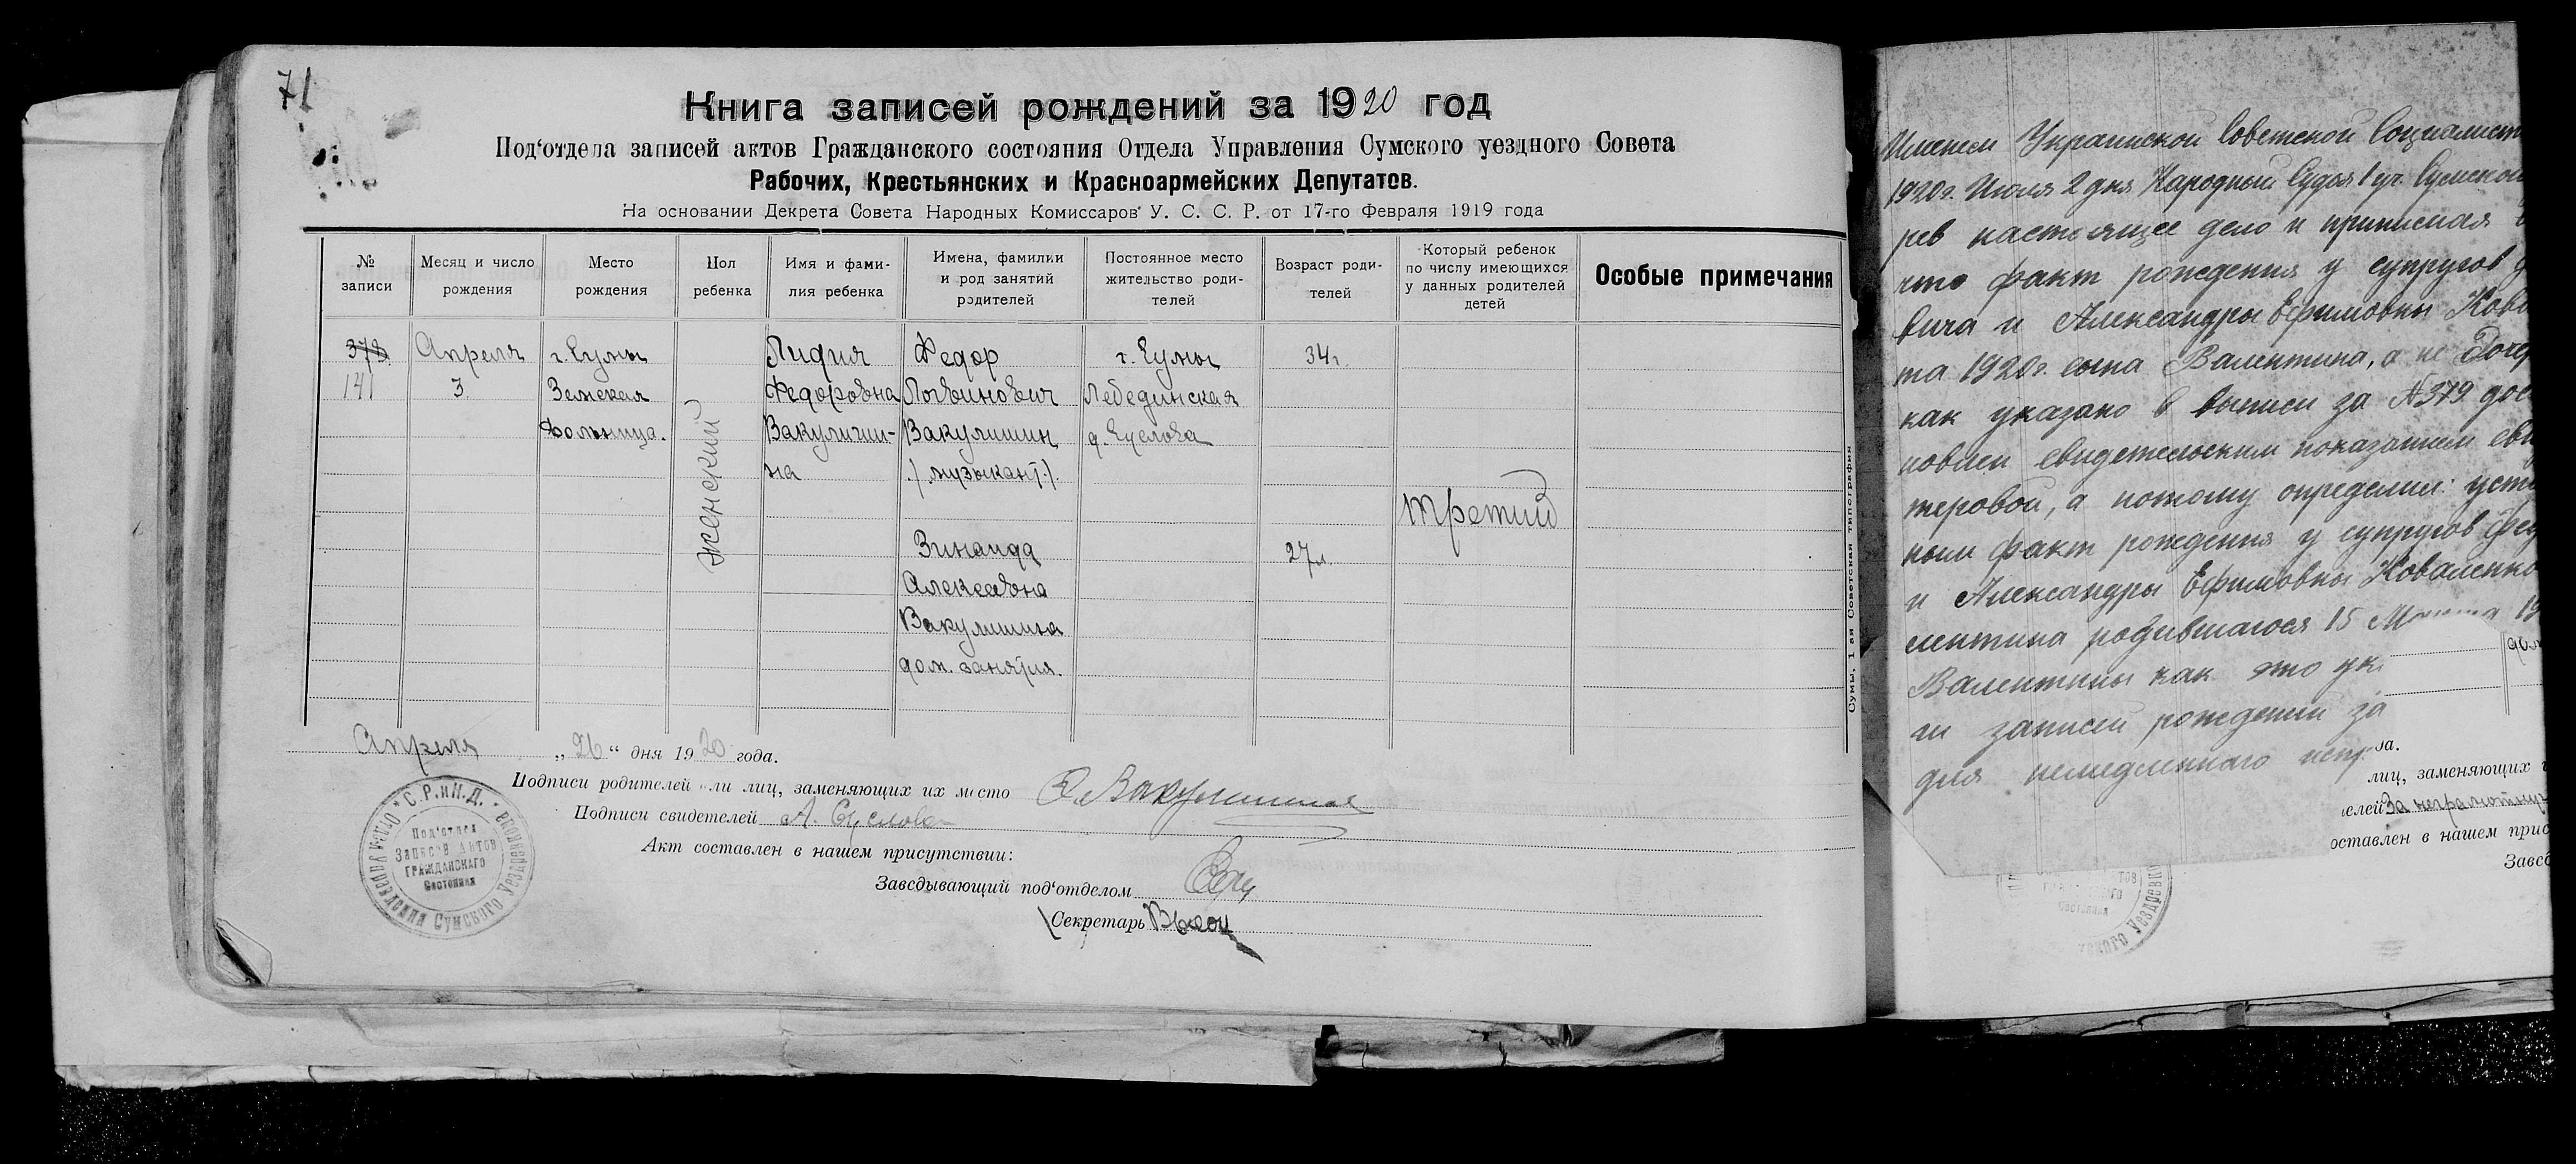 71
Книга записей рождений за 1920 год
Под‘отдела записей актов Гражданского состояния Отдела Управления Сумского уездного Совета
Рабочих, Крестьянских и Красноармейских Депутатов.
На основании Декрета Совета Народных Комиссаров У. С. С. Р. от 17-го Февраля 1919 года
№ записи
Месяц и число рождения
Место рождения
Пол ребенка
Имя и фами-
лия ребенка
Имена, фамилии
и род занятий
родителей
Постоянное место
жительство роди-
телей
Возраст роди-
телей
Который ребенок
по числу имеющихся
у данных родителей
детей
Особые примечания
378
141
Апреля
3
г. Сумы
Земская
больница.
женский
Лидия
Федоровна
Вакулиши-
на
Федор
Логвинович
Вакулишин
/музыкант/
Зинаида
Алексеевна
Вакулишина
дом. занятия.
г. Сумы
Лебединская
д. Суслова
34 г.
27 л.
третий
Апреля „26“ дня 1920 года.
Подписи родителей или лиц, заменяющих их место Вакулишин
Подписи свидетелей А. Суслова
Акт составлен в нашем присутствии:
Заведывающий под‘отделом
Секретарь
С.Р.и К.Д.
Под‘отдел
Записей Актов
Гражданского
Состояния
Сумы, 1-ая Советская типография
Именем Украинской Советской Социалист
1920 г. Июля 2 дня Народный Судья 1 уч. Сумской
рев настоящее дело и принимая
что факт рождения у супругов
вича и Александры Ефимовны Кова
та 1920 г. сына Валентина, а не Дочер
как указано в выписи за №379 дос
новлен свидетельским показанием сви
теровой, а потому определил: уста
ным факт рождения у супругов Фед
и Александры Ефимовны Коваленко
лентина родившагося 15 Марта 19
Валентины как это ук
ги записей рождений за
для немедленного испр
лиц, заменяющих и
елей За неграмотную
оставлен в нашем прис
Завед